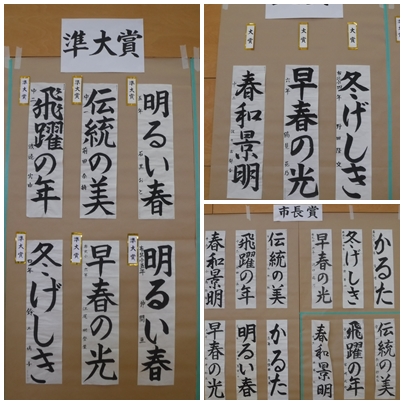 準大賞
準大賞
準大賞
準大賞
明るい春
伝統の美
飛躍の年
準大賞
準大賞
準大賞
明るい春
早春の光
冬げしき
大賞
大賞
大賞
冬げしき
早春の光
春和景明
市長賞
かるた
冬げしき
早春の光
伝統の美
飛躍の年
春和景明
伝統の美
飛躍の年
春和景明
かるた
明るい春
早春の光